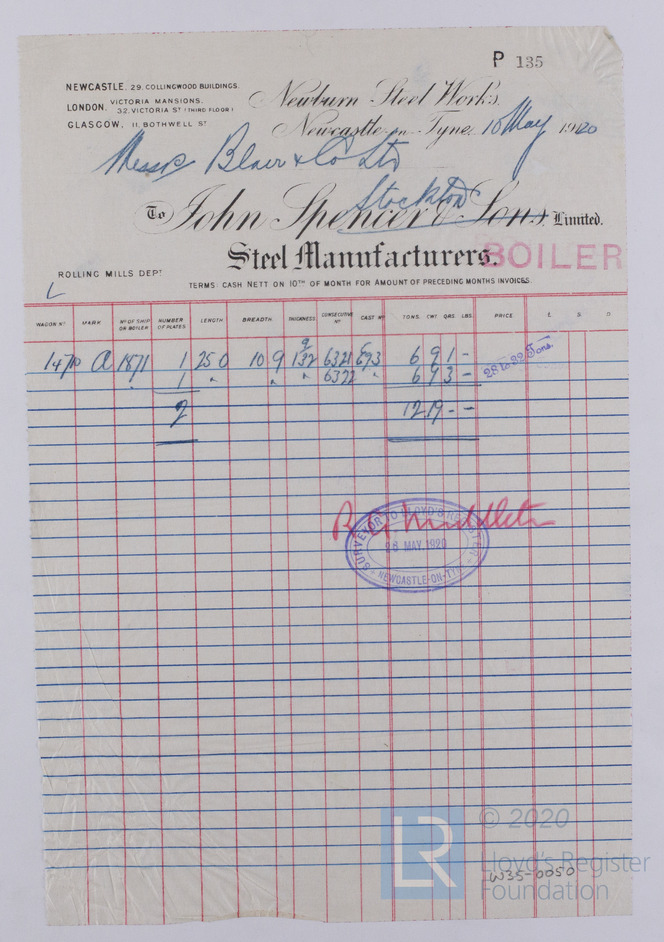 P 135
NEWCASTLE. 29. COLLINGWOOD BUILDINGS.
LONDON. VICTORIA MANSIONS. 32. VICTORIA ST (THIRD FLOOR)
GLASGOW, 11. BOTHWELL ST
Newburn Steel Works.
Newcastle-on-Tyne, 10 May 1920
Messrs Blair & Co Ltd
Stockton
To John Spencer & Sons, Limited.
Steel Manufacturers.
BOILER
ROLLING MILLS DEPT
TERMS: CASH NETT ON 10TH OF MONTH FOR AMOUNT OF PRECEDING MONTHS INVOICES.
WAGON NO MARK NO OF SHIP OR BOILER NUMBER OF PLATES LENGTH BREADTH THICKNESS CONSECUTIVE NO CAST NO TONS. CWT QRS. LBS. PRICE. £ S. D
1871 1 25 0 10 9 1 9/32 6321 6 9 1 -
" 1 " " " 6322 " 6 9 3 -
2 12 19 - -
28 to 32 Tons.
SURVEYOR TO LLOYD'S REGISTER
MAY 1920
NEWCASTLE-ON-TYNE
LR
© 2020
Lloyd's Register
Foundation
W35-0050